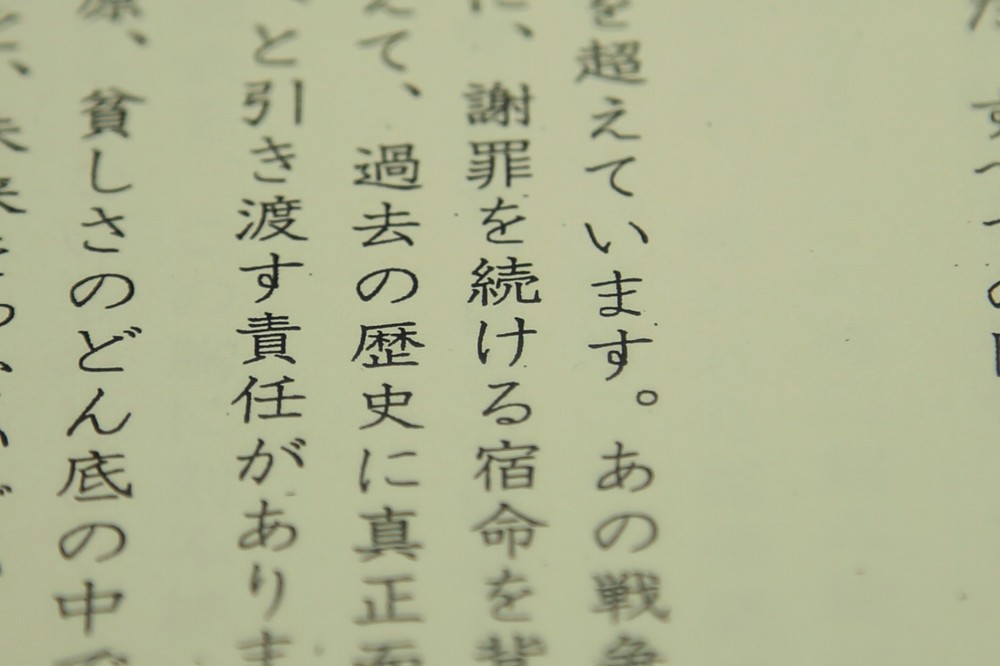 を超えています。あの戦争
に、謝罪を続ける宿命を背
えて、過去の歴史に真正面
と引き渡す責任がありま
原、貧しさのどん底の中で